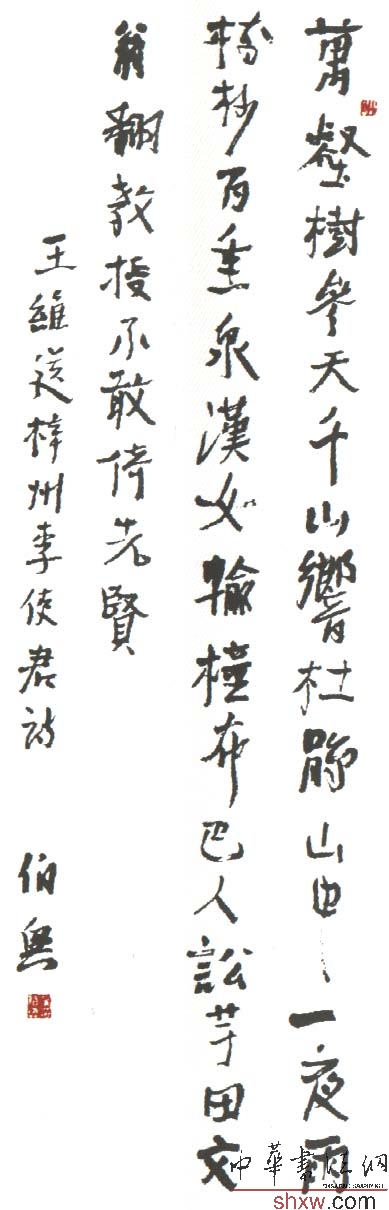 萬壑樹參天千山響杜鵑山中一夜雨
樹杪百重泉漢女輸橦布巴人訟芋田文
翁翻教授不敢倚先賢
王維送梓州李使君詩 伯
中華書法網
shxw.com